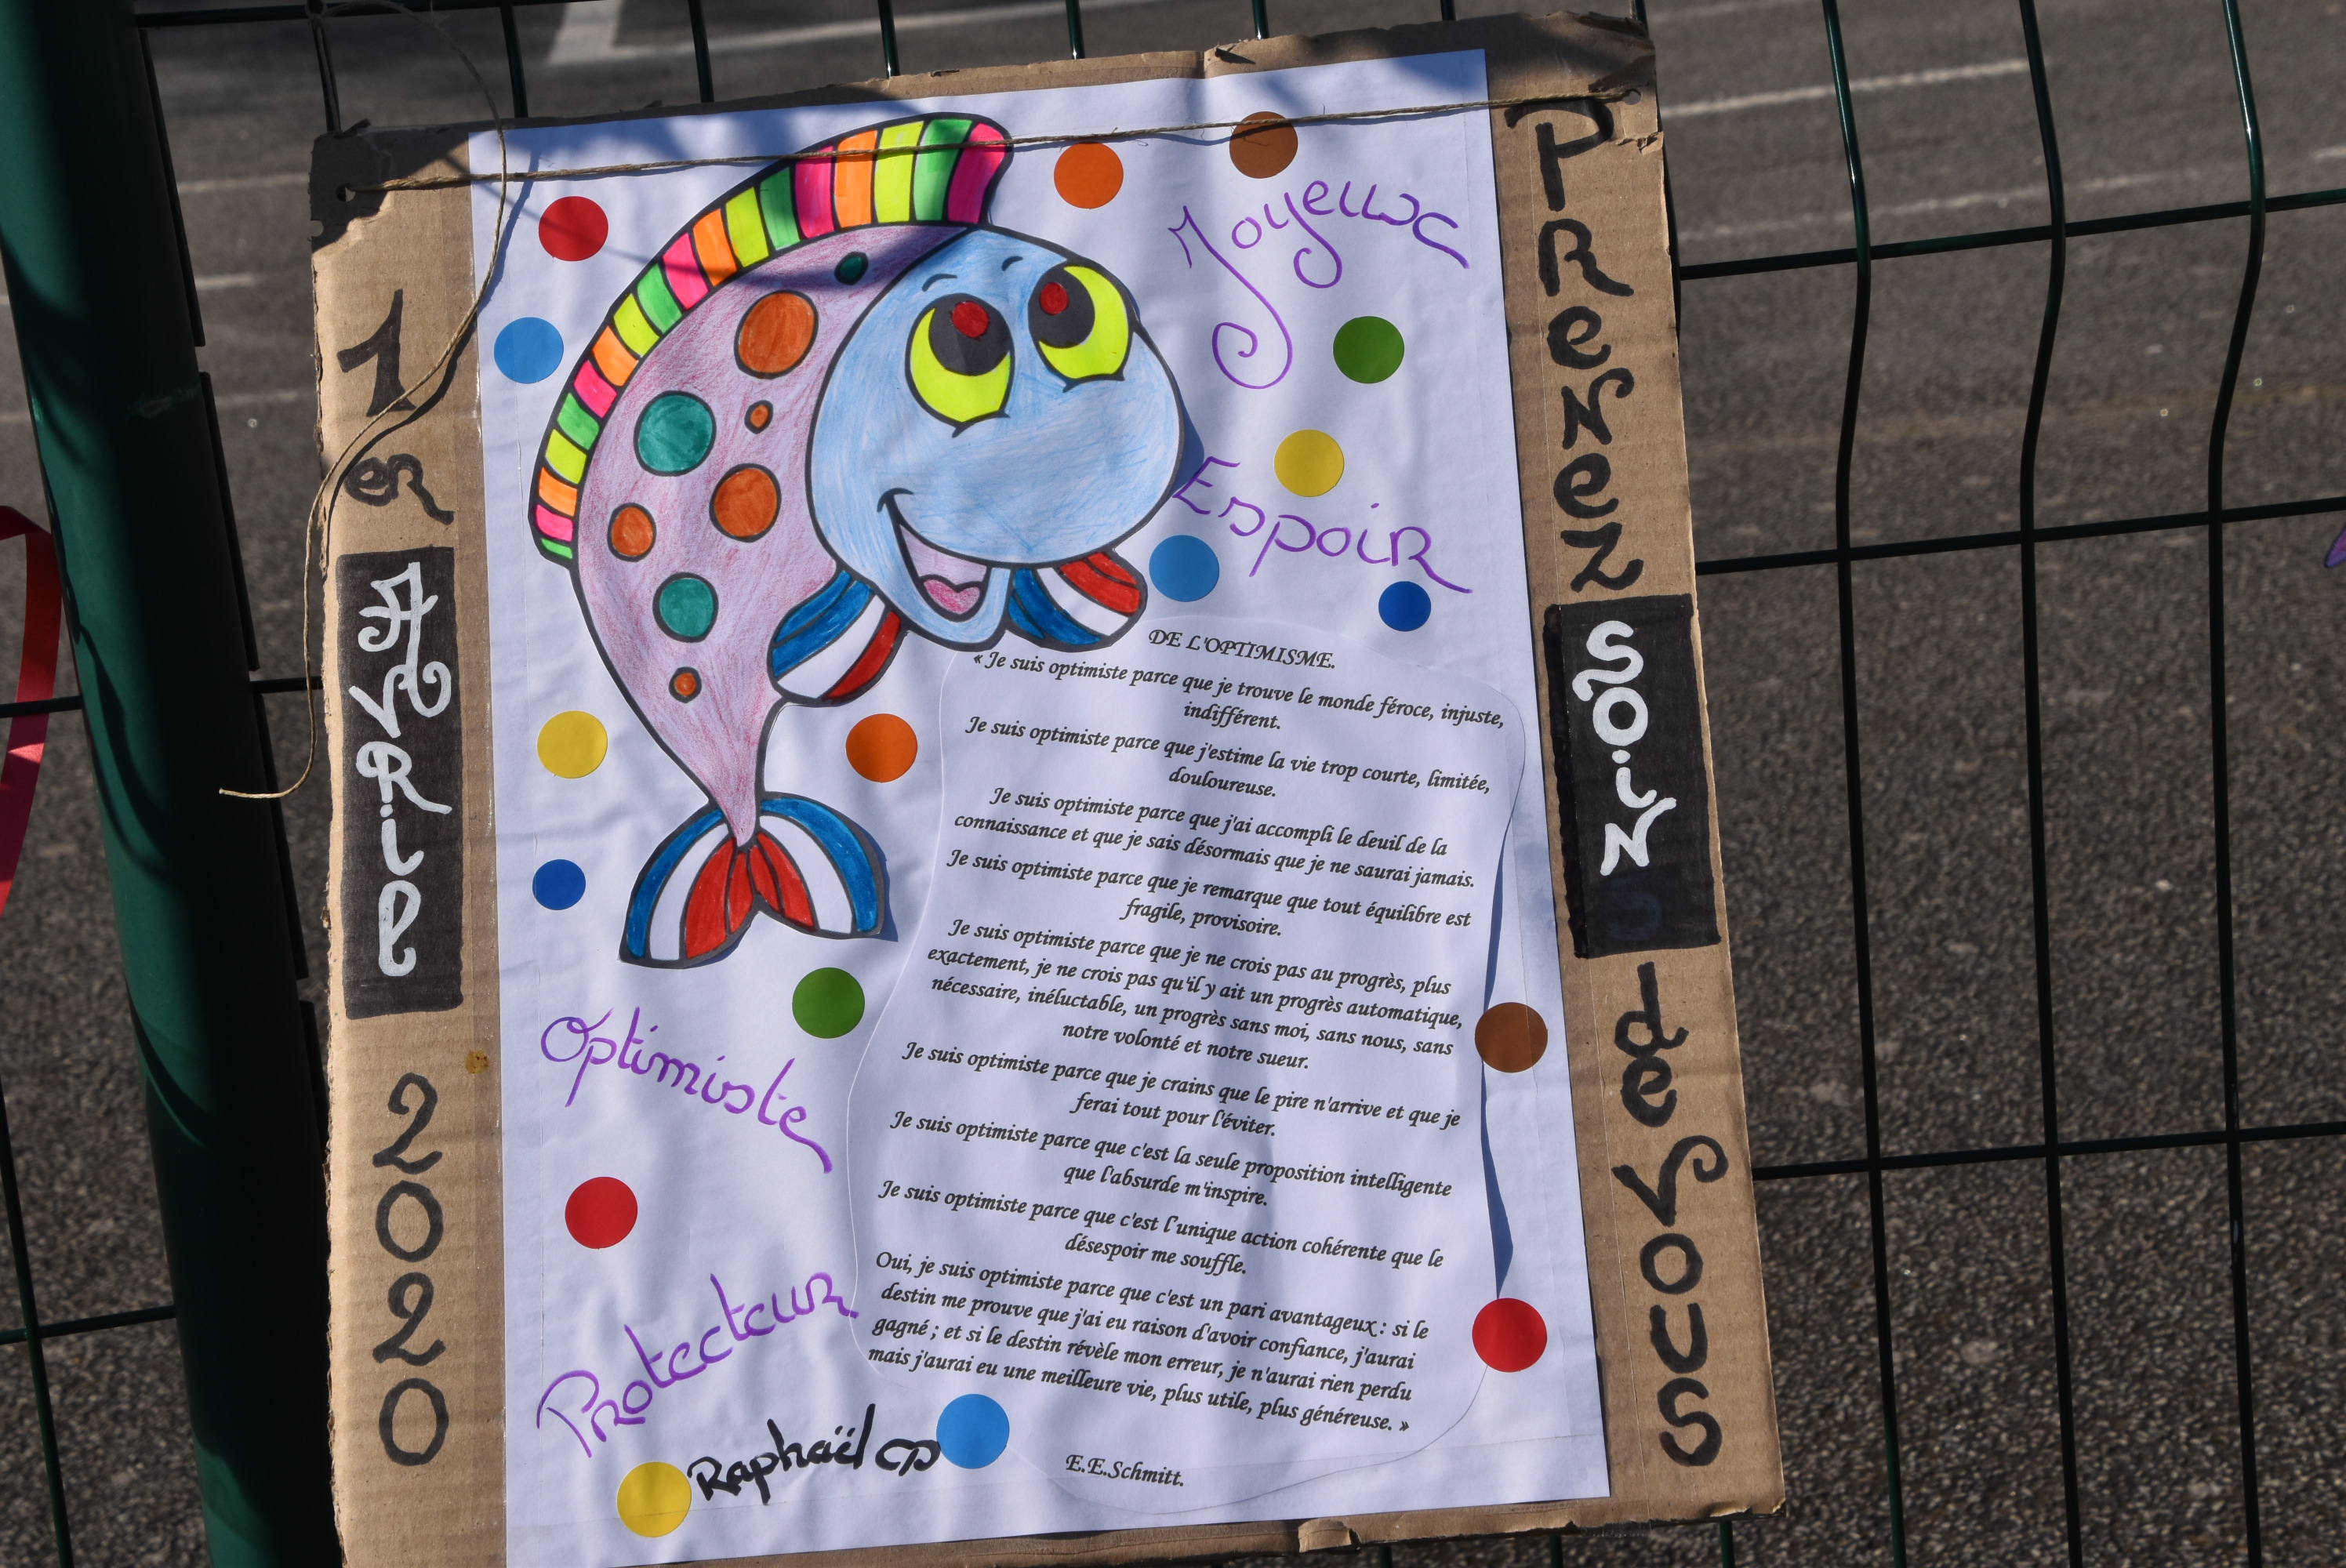 1er
AVRIL
2020
Joyeux
Espoir
DE L'OPTIMISME.
« Je suis optimiste parce que je trouve le monde féroce, injuste,
indifférent.
Je suis optimiste parce que j'estime la vie trop courte, limitée,
douloureuse.
Je suis optimiste parce que j'ai accompli le deuil de la
connaissance et que je sais désormais que je ne saurai jamais.
Je suis optimiste parce que je remarque que tout équilibre est
fragile, provisoire.
Je suis optimiste parce que je ne crois pas au progrès, plus
exactement, je ne crois pas qu'il y ait un progrès automatique,
nécessaire, inéluctable, un progrès sans moi, sans nous, sans
notre volonté et notre sueur.
Je suis optimiste parce que je crains que le pire n'arrive et que je
ferai tout pour l'éviter.
Je suis optimiste parce que c'est la seule proposition intelligente
que l'absurde m'inspire.
Je suis optimiste parce que c'est l'unique action cohérente que le
désespoir me souffle.
Oui, je suis optimiste parce que c'est un pari avantageux : si le
destin me prouve que j'ai eu raison d'avoir confiance, j'aurai
gagné ; et si le destin révèle mon erreur, je n'aurai rien perdu
mais j'aurai eu une meilleure vie, plus utile, plus généreuse. »
E.E.Schmitt.
Optimiste
Protecteur
Raphaël CP
PReNeZ
SOiN
de
VOUS